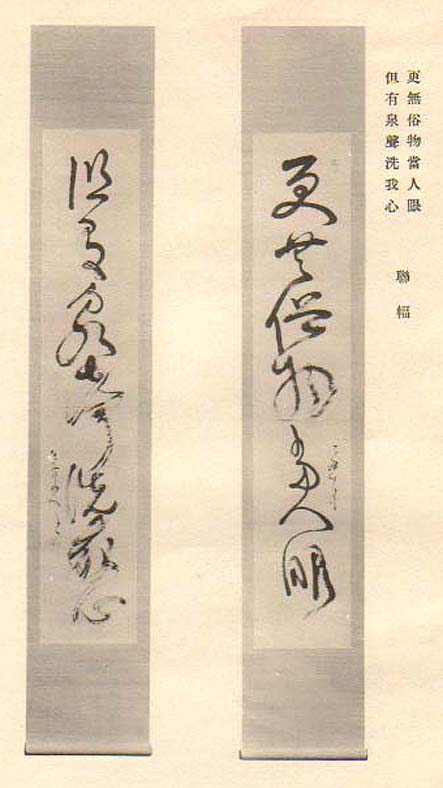 更無俗物當人眼
但有泉聲洗我心
聯幅
更無俗物當人眼
但有泉聲洗我心